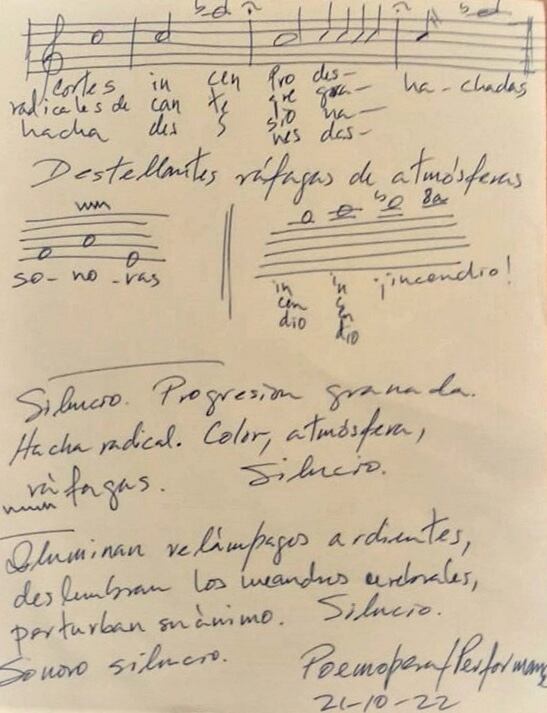 cortes in cen Pro des- ha-chadas
radicales de can te gre gra-
hacha des s sio na-
nes das-
Destellantes ráfagas de atmósferas
so- no -ras
in in ¡incendio!
cen cen
dio dio
8a
Silencio. Progresión granada.
Hacha radical. Color, atmósfera,
ráfagas. Silencio.
Iluminan relámpagos ardientes,
deslumbran los meandros cerebrales,
perturban su ánimo. Silencio.
Sonoro silencio.
Poemopera/Performance
21-10-22